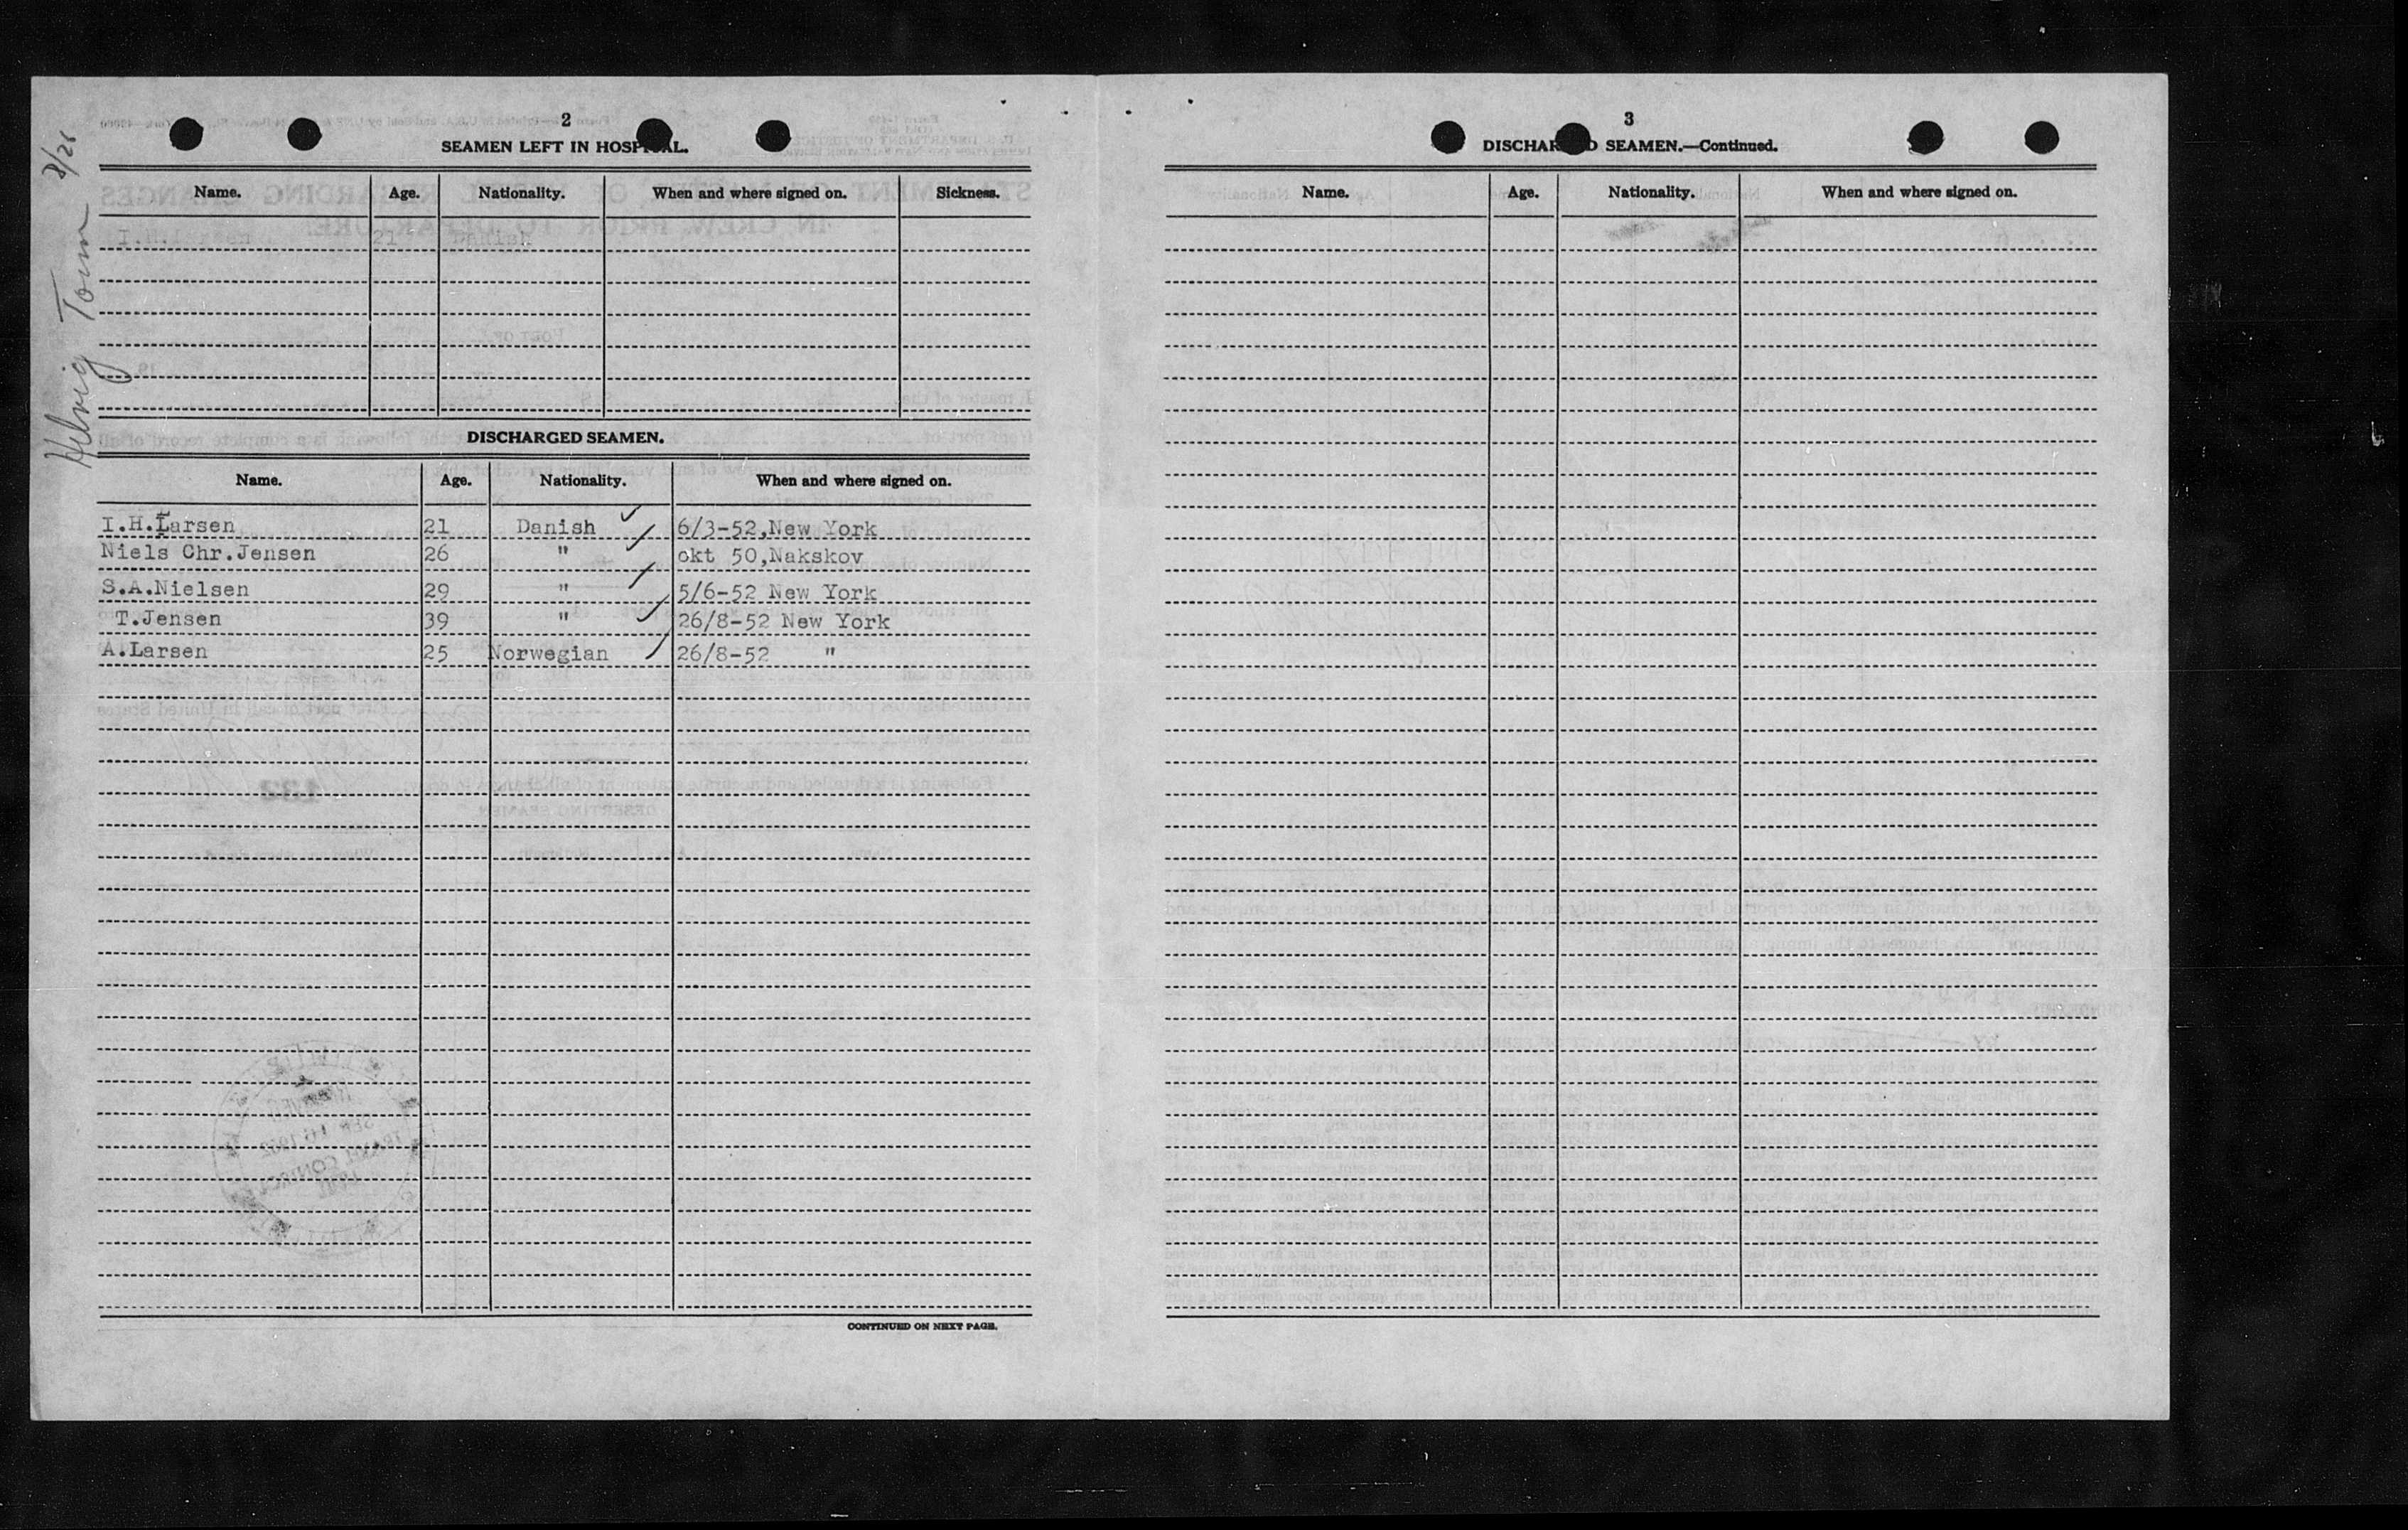 2
SEAMEN LEFT IN HOSPITAL.
Name. Age. Nationality. When and where signed on. Sickness.
I.H.Larsen 21 Danish
DISCHARGED SEAMEN.
Name. Age. Nationality. When and where signed on.
I.H.Larsen 21 Danish 6/3-52,New York
Niels Chr.Jensen 26 " okt 50,Nakskov
S.A.Nielsen 29 " 5/6-52 New York
T.Jensen 39 " 26/8-52 New York
A.Larsen 25 Norwegian 26/8-52 "
CONTINUED ON NEXT PAGE.
Helvig Torm 8/25
3
DISCHARGED SEAMEN.—Continued.
Name. Age. Nationality. When and where signed on.